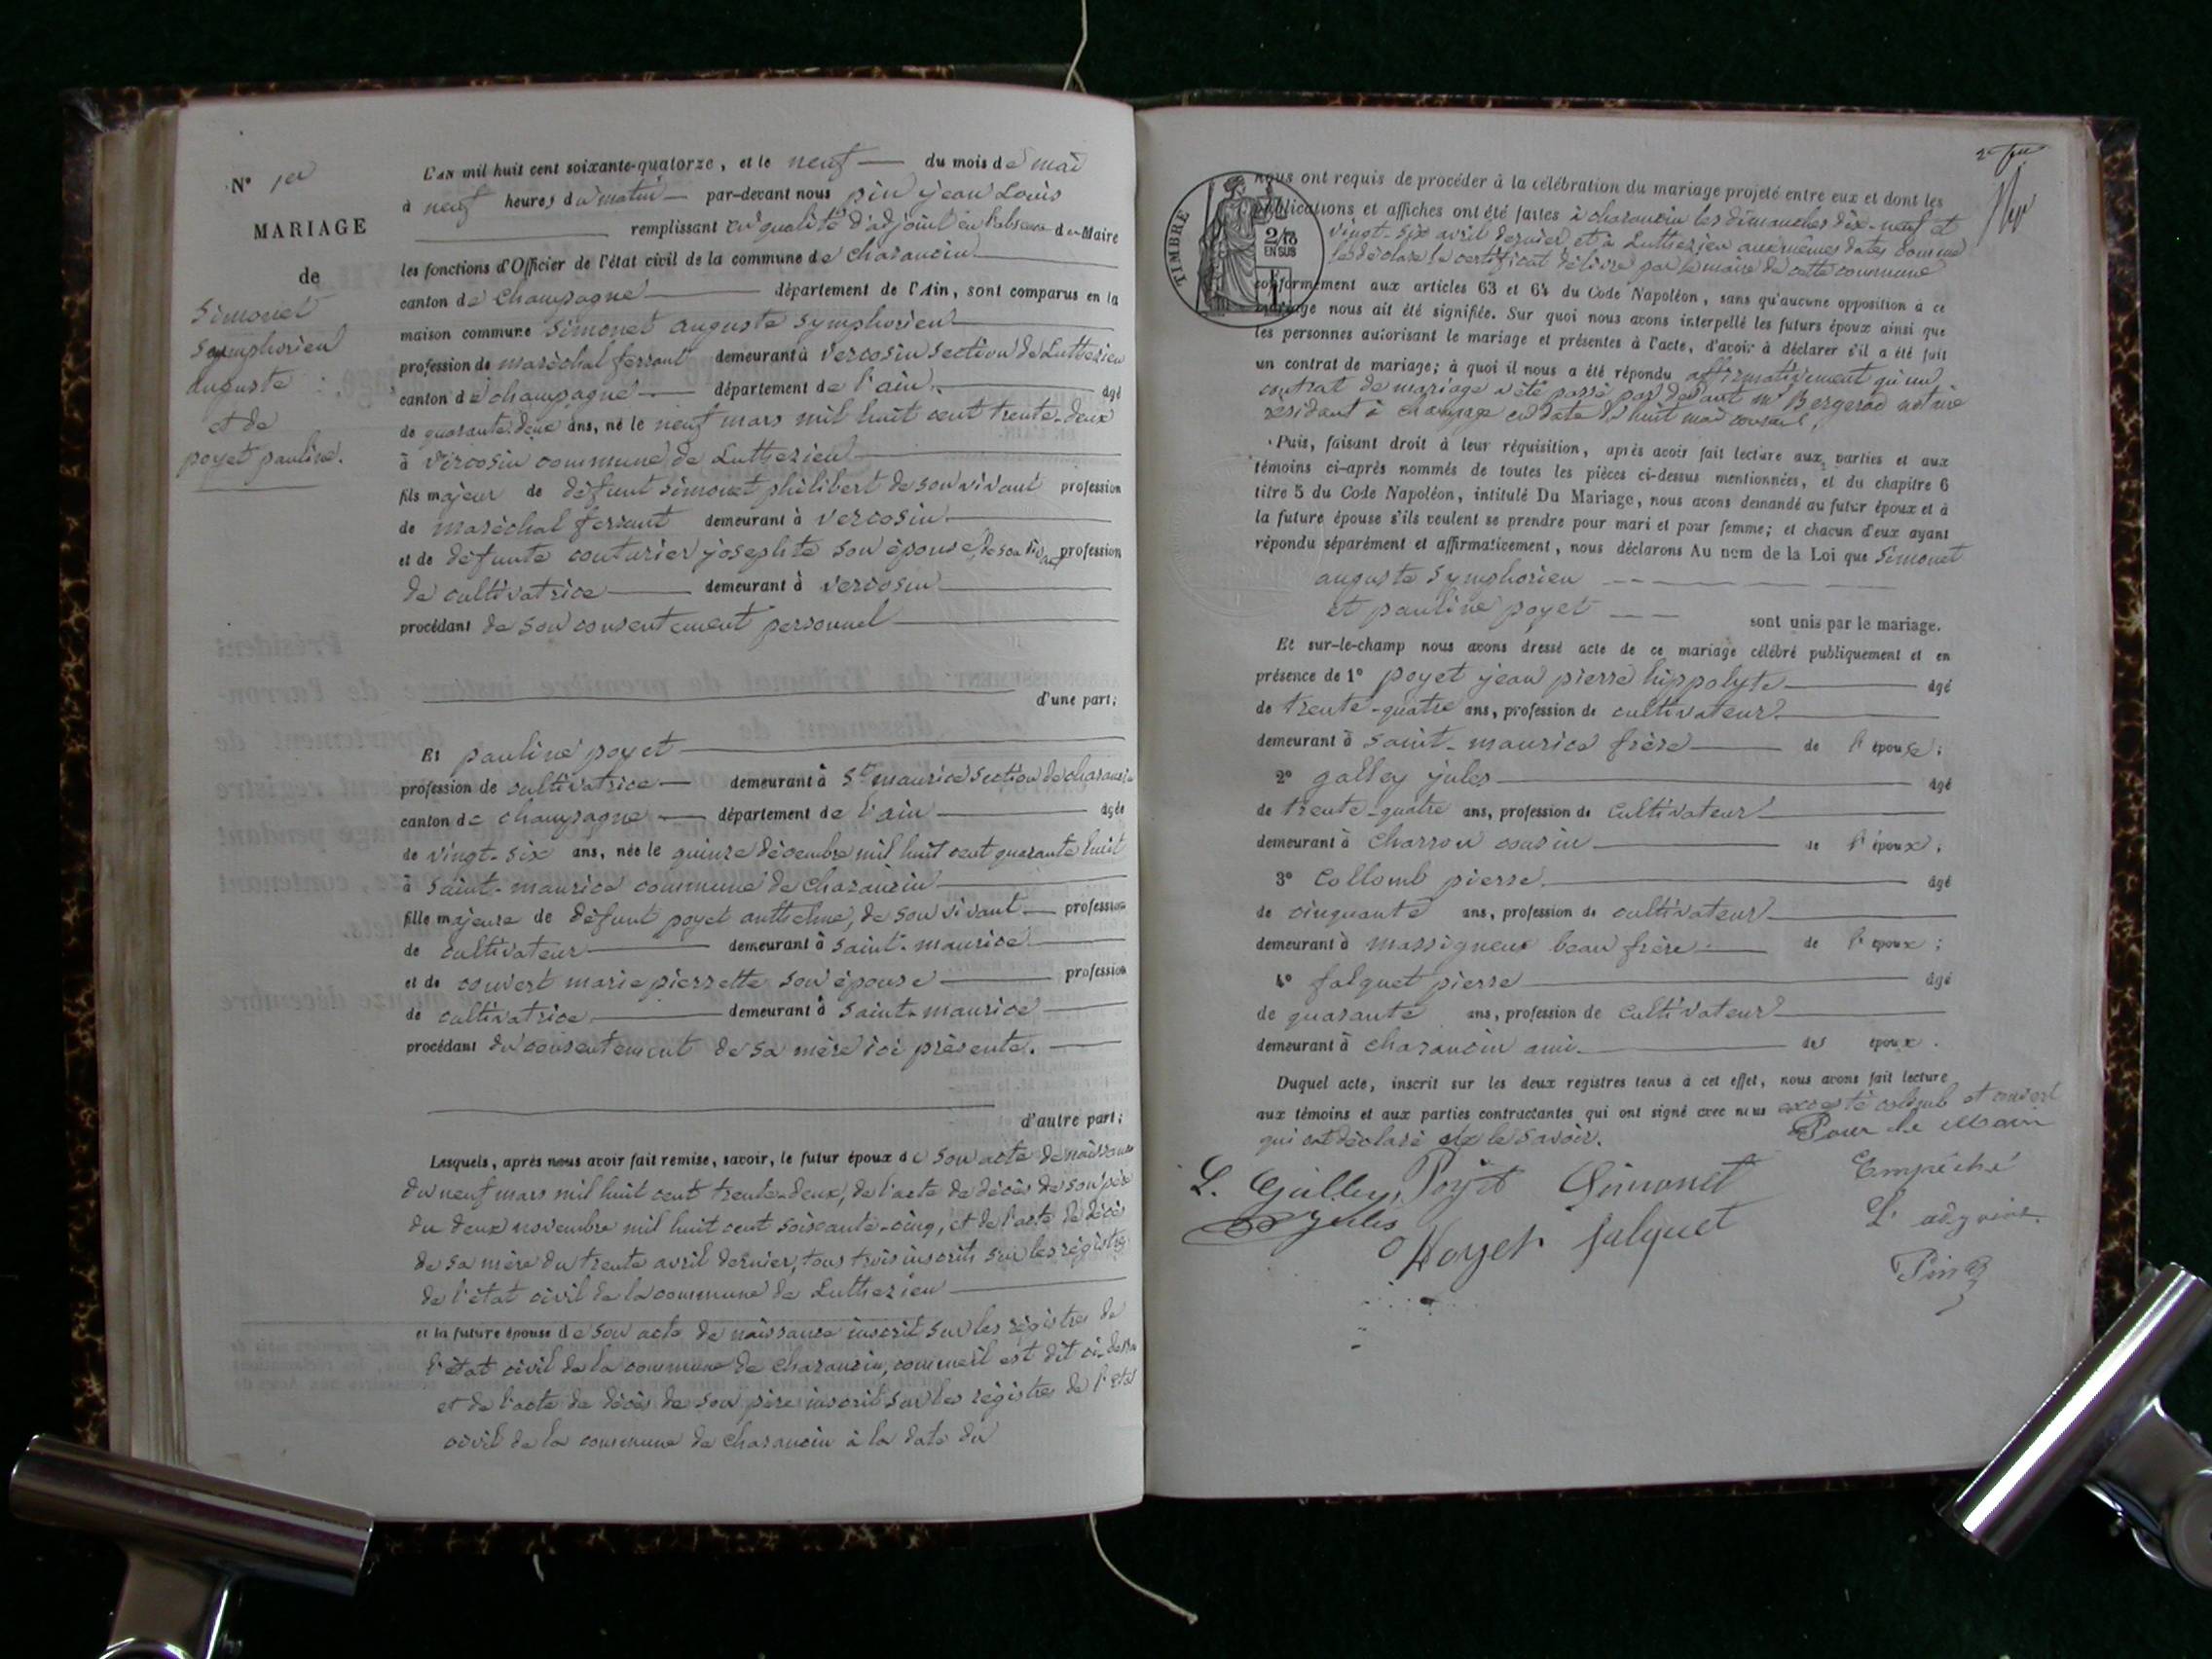 N° 1er
MARIAGE
de
Simonet
Symphorien
auguste
et de
poyet pauline.
L'AN mil huit cent soixante-quatorze, et le neuf du mois de mai
à neuf heures du matin par-devant nous pin jean Louis
remplissant en qualité d'adjoint en l'absence du Maire
les fonctions d'Officier de l'état civil de la commune de charancin
canton de Champagne département de l'Ain, sont comparus en la
maison commune Simonet auguste Symphorien
profession de maréchal ferrant demeurant à vercosin section de Luthezieu
canton de champagne département de l'ain âgé
de quarante deux ans, né le neuf mars mil huit cent trente-deux
à vercosin commune de Luthezieu
fils majeur de défunt simonet phélibert de son vivant profession
de maréchal ferrant demeurant à vercosin
et de défunte couturier josephte son épouse, de son vivant profession
de cultivatrice demeurant à vercosin
procédant de son consentement personnel
d'une part;
Et pauline poyet
profession de cultivatrice demeurant à St maurice section de charancin
canton de champagne département de l'ain âgée
de vingt-six ans, née le quinze décembre mil huit cent quarante huit
à saint-maurice commune de charancin
fille majeure de défunt poyet anthelme, de son vivant profession
de cultivateur demeurant à saint-maurice
et de couvert marie pierrette son épouse profession
de cultivatrice demeurant à saint-maurice
procédant du consentement de sa mère ici présente.
d'autre part;
Lesquels, après nous avoir fait remise, savoir, le futur époux de son acte de naissance
du neuf mars mil huit cent trente-deux, de l'acte de décès de son père
du deux novembre mil huit cent soixante-cinq, et de l'acte de décès
de sa mère du trente avril dernier, tous trois inscrits sur les régistres
de l'état civil de la commune de Luthezieu
et la future épouse de son acte de naissance inscrit sur les régistres de
l'état civil de la commune de charancin, comme il est dit ci-dessus
et de l'acte de décès de son père inscrit sur les régistres de l'état
civil de la commune de charancin à la date du
TIMBRE
2/10
EN SUS
nous ont requis de procéder à la célébration du mariage projeté entre eux et dont les
publications et affiches ont été faites à charancin les dimanches dix-neuf et
vingt-six avril dernier et à Luthezieu aux mêmes dates comme
le déclare le certificat délivré par le maire de cette commune
conformément aux articles 63 et 64 du Code Napoléon, sans qu'aucune opposition à ce
mariage nous ait été signifiée. Sur quoi nous avons interpellé les futurs époux ainsi que
les personnes autorisant le mariage et présentes à l'acte, d'avoir à déclarer s'il a été fait
un contrat de mariage; à quoi il nous a été répondu affirmativement qu'un
contrat de mariage a été passé par devant mr Bergerod notaire
résidant à champagne en date du huit mai courant,
Puis, faisant droit à leur réquisition, après avoir fait lecture aux parties et aux
témoins ci-après nommés de toutes les pièces ci-dessus mentionnées, et du chapitre 6
titre 5 du Code Napoléon, intitulé Du Mariage, nous avons demandé au futur époux et à
la future épouse s'ils veulent se prendre pour mari et pour femme; et chacun d'eux ayant
répondu séparément et affirmativement, nous déclarons Au nom de la Loi que Simonet
auguste Symphorien
et pauline poyet
sont unis par le mariage.
Et sur-le-champ nous avons dressé acte de ce mariage célébré publiquement et en
présence de 1° poyet jean pierre hippolyte âgé
de trente-quatre ans, profession de cultivateur
demeurant à saint-maurice frère de l'épouse;
2° galley jules âgé
de trente-quatre ans, profession de cultivateur
demeurant à charron cousin de l'époux;
3° Collomb pierre âgé
de cinquante ans, profession de cultivateur
demeurant à massigneux beau frère de l'époux;
4° falquet pierre âgé
de quarante ans, profession de cultivateur
demeurant à charancin ami des époux.
Duquel acte, inscrit sur les deux registres tenus à cet effet, nous avons fait lecture
aux témoins et aux parties contractantes qui ont signé avec nous excepté colomb et couvert
qui ont déclaré le savoir.
Pour le Maire
Empêché
L'adjoint
Pin
L. Galley Jules
Poyet
Simonet
Poyet
falquet